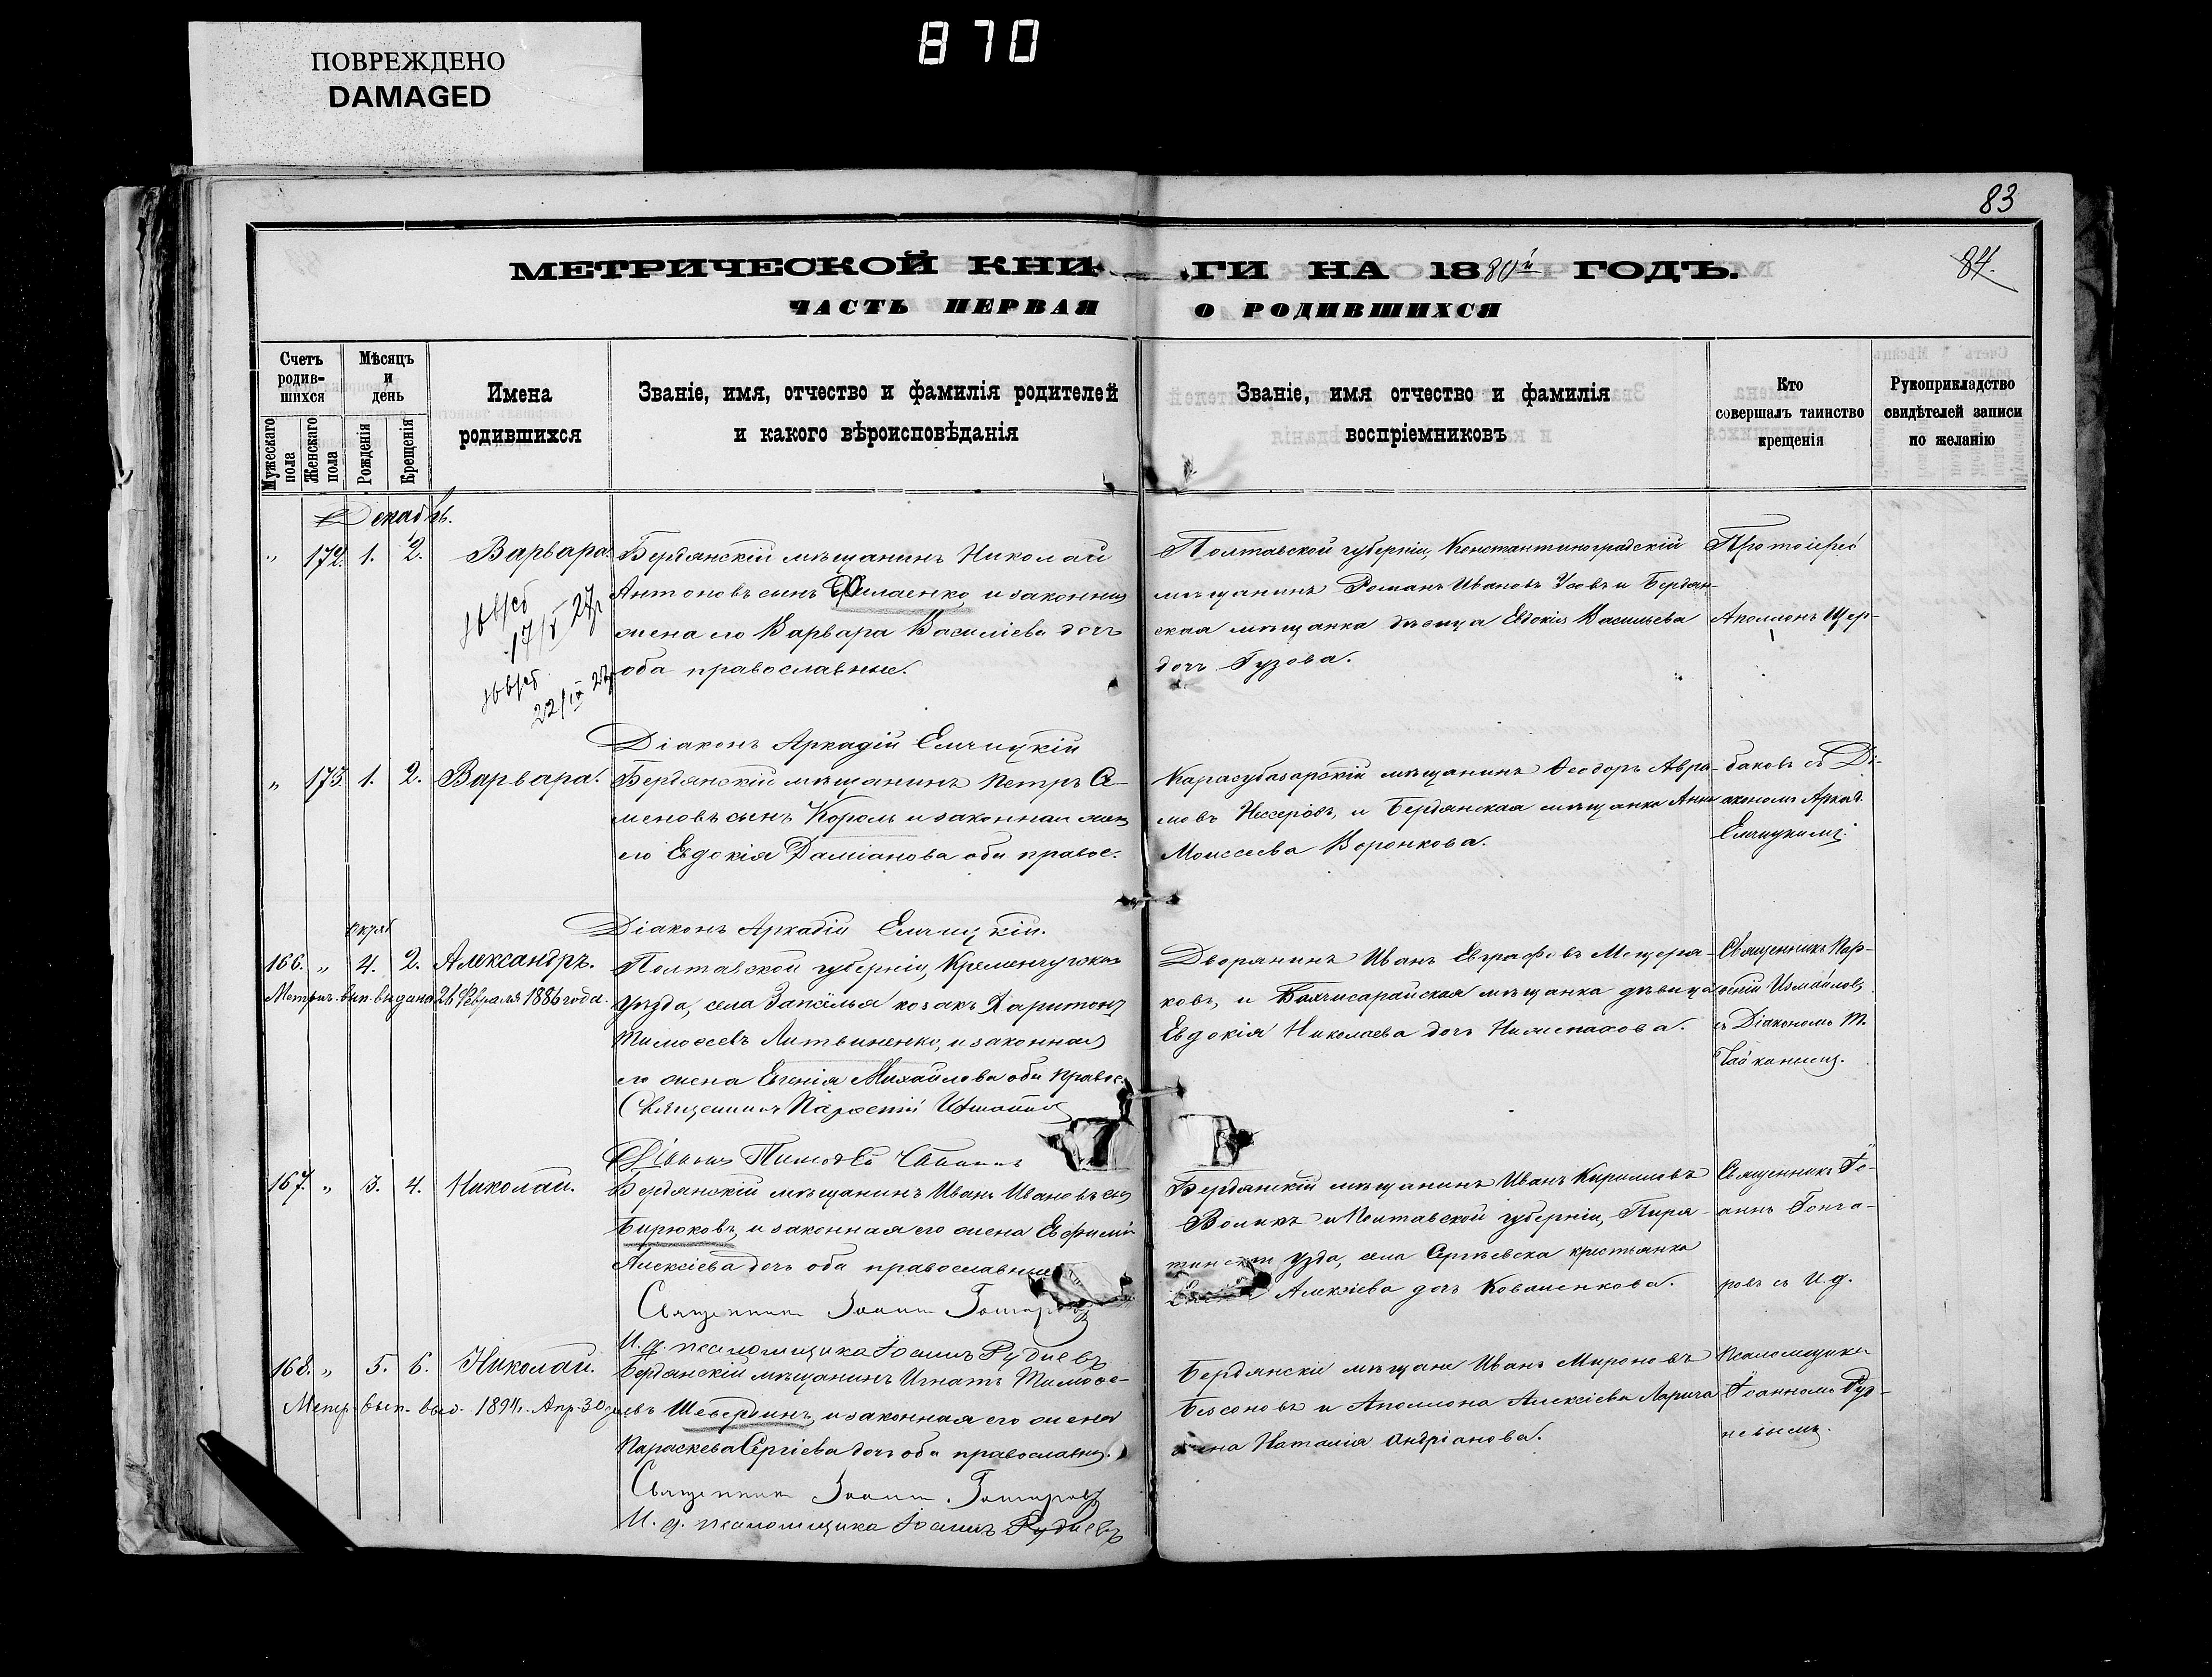 ПОВРЕЖДЕНО
DAMAGED
870
83
84.
МЕТРИЧЕСКОЙ КНИГИ НА 1880й ГОДЪ.
ЧАСТЬ ПЕРВАЯ О РОДИВШИХСЯ
Счетъ родив-шихся
Мужескаго пола
Женскаго пола
Мѣсяцъ и день
Рожденія
Крещенія
Имена родившихся
Званіе, имя, отчество и фамилія родителей
и какого вѣроисповѣданія
Званіе, имя отчество и фамилія
воспріемниковъ
Кто
совершалъ таинство
крещенія
Рукоприкладство
свидѣтелей записи
по желанію
Декабрь.
" 172. 1. 2. Варвара.
Бердянскій мѣщанинъ Николай
Антоновъ сынъ и законная
жена его Варвара Василіева дочь
оба православные.
Діаконъ Аркадій
Полтавской губерніи, Константиноградскій
мѣщанинъ Романъ Ивановъ Усовъ и Бердян-
ская мѣщанка дѣвица Евдокія Васильева
дочь Гузова.
Протоіерей
Аполлонъ Щер-
" 173. 1. 2. Варвара.
Бердянскій мѣщанинъ Петръ Се-
меновъ сынъ Король и законная жена
его Евдокія Даміанова оба правос.
Діаконъ Аркадій
Карасубазарскій мѣщанинъ Ѳеодоръ Авра-
мовъ и Бердянская мѣщанка Анна
Моисеева Воронкова.
баковъ съ Ді-
акономъ Аркад.
166. " 4. 2. Александръ.
Метрич. вып. выдана 26 Февраля 1886 года.
Полтавской губерніи, Кременчугскаго
уѣзда, села Запселья козакъ Харитонъ
Тимоѳеевъ Литвиненко, и законная
его жена Евгенія Михайлова оба правос.
Священникъ
Дворянинъ Иванъ Евграфовъ Мещеря-
ковъ, и Бахчисарайская мѣщанка дѣвица
Евдокія Николаева дочь
Священникъ Пар-
ѳеній Измаиловъ
съ Діакономъ Т.
167. " 3. 4. Николай.
Бердянскій мѣщанинъ Иванъ Ивановъ сынъ
Бирюковъ, и законная его жена Евфимія
Алексіева дочь оба православные
Священникъ Іоаннъ Гончаровъ
И. д. псаломщика Іоаннъ Рудневъ
Бердянскій мѣщанинъ Иванъ Кириловъ
Воликъ и Полтавской губерніи, Пиря-
тинскаго уѣзда, села Сергѣевска крестьянка
Алексіева дочь Коваленкова.
Священникъ Іо-
аннъ Гонча-
ровъ съ И. д.
168. " 5. 6. Николай.
Метр. вып. выд. Апр. 30
Бердянскій мѣщанинъ Игнатъ Тимоѳе-
евъ и законная его жена
Параскева Сергіева дочь оба православн.
Священникъ Іоаннъ Гончаровъ
И. д. псаломщика Іоаннъ Рудневъ
Бердянскіе мѣщане Иванъ Мироновъ
Безсоновъ и Аполлона Алексіева
жена Наталія Андріанова.
псаломщика
Іоанномъ Руд-
невымъ.